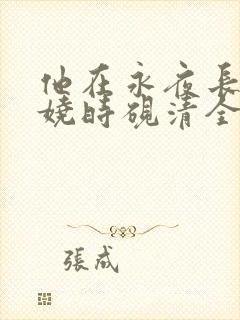 他在永夜長
嬈時硯清全
張成